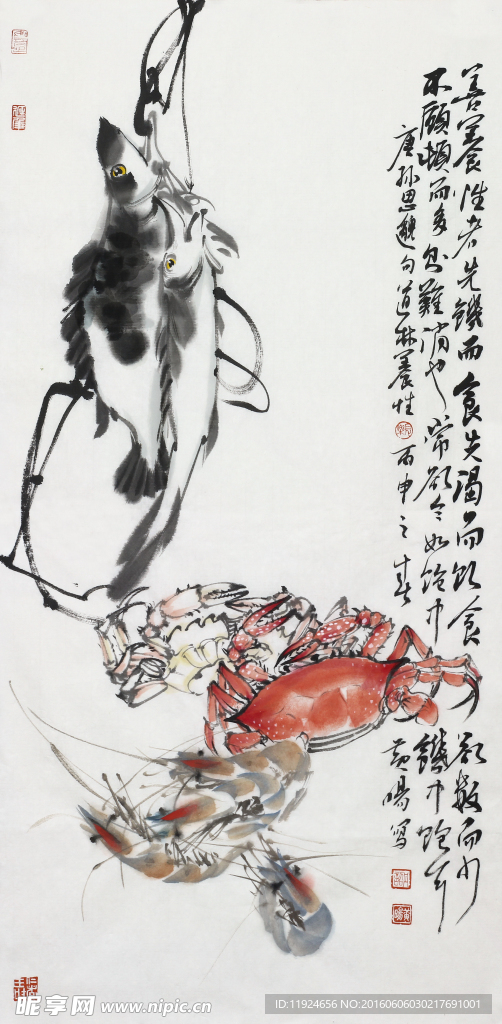 善養性者先饑而食先渴而飲食欲數而少
不顧頓而多則難消也常欲令如飽中饑中飽耳
唐孫思邈句道林養性 丙申之春 黄鳴寫
昵享网 www.nipic.cn
ID:11924656 NO:20160606030217691001